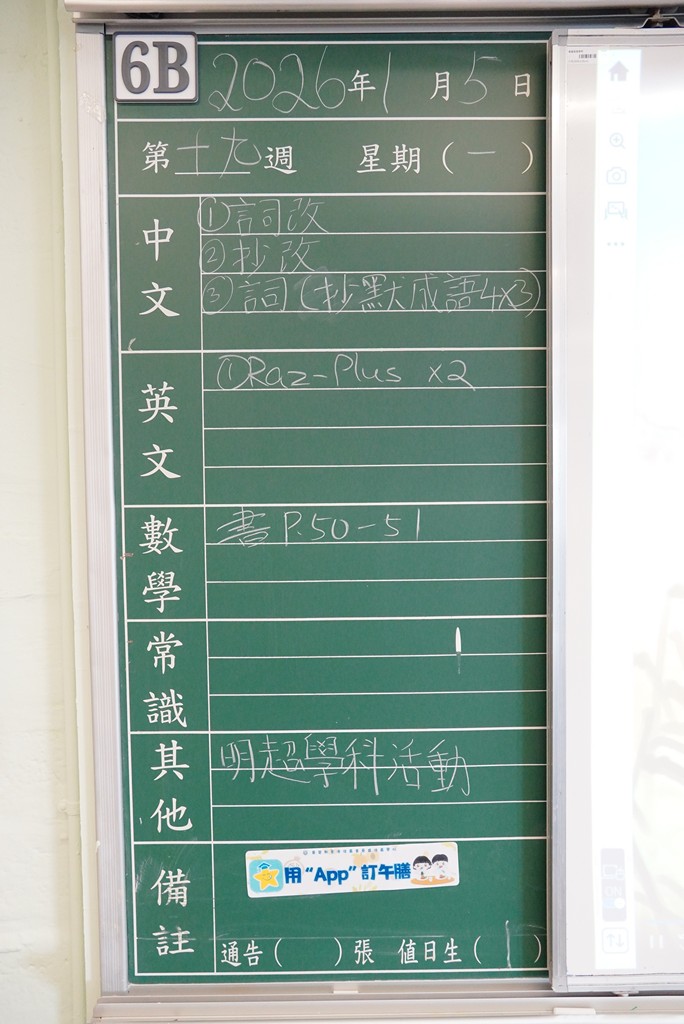 6B
2026年1月5日
第十九週 星期（一）
中文
①詞改
②抄改
③詞(抄默成語4x3)
英文
①Raz-Plus x2
數學
書P.50-51
常識
其他
明超學科活動
備註
用“App”訂午膳
通告（ ）張 值日生（ ）